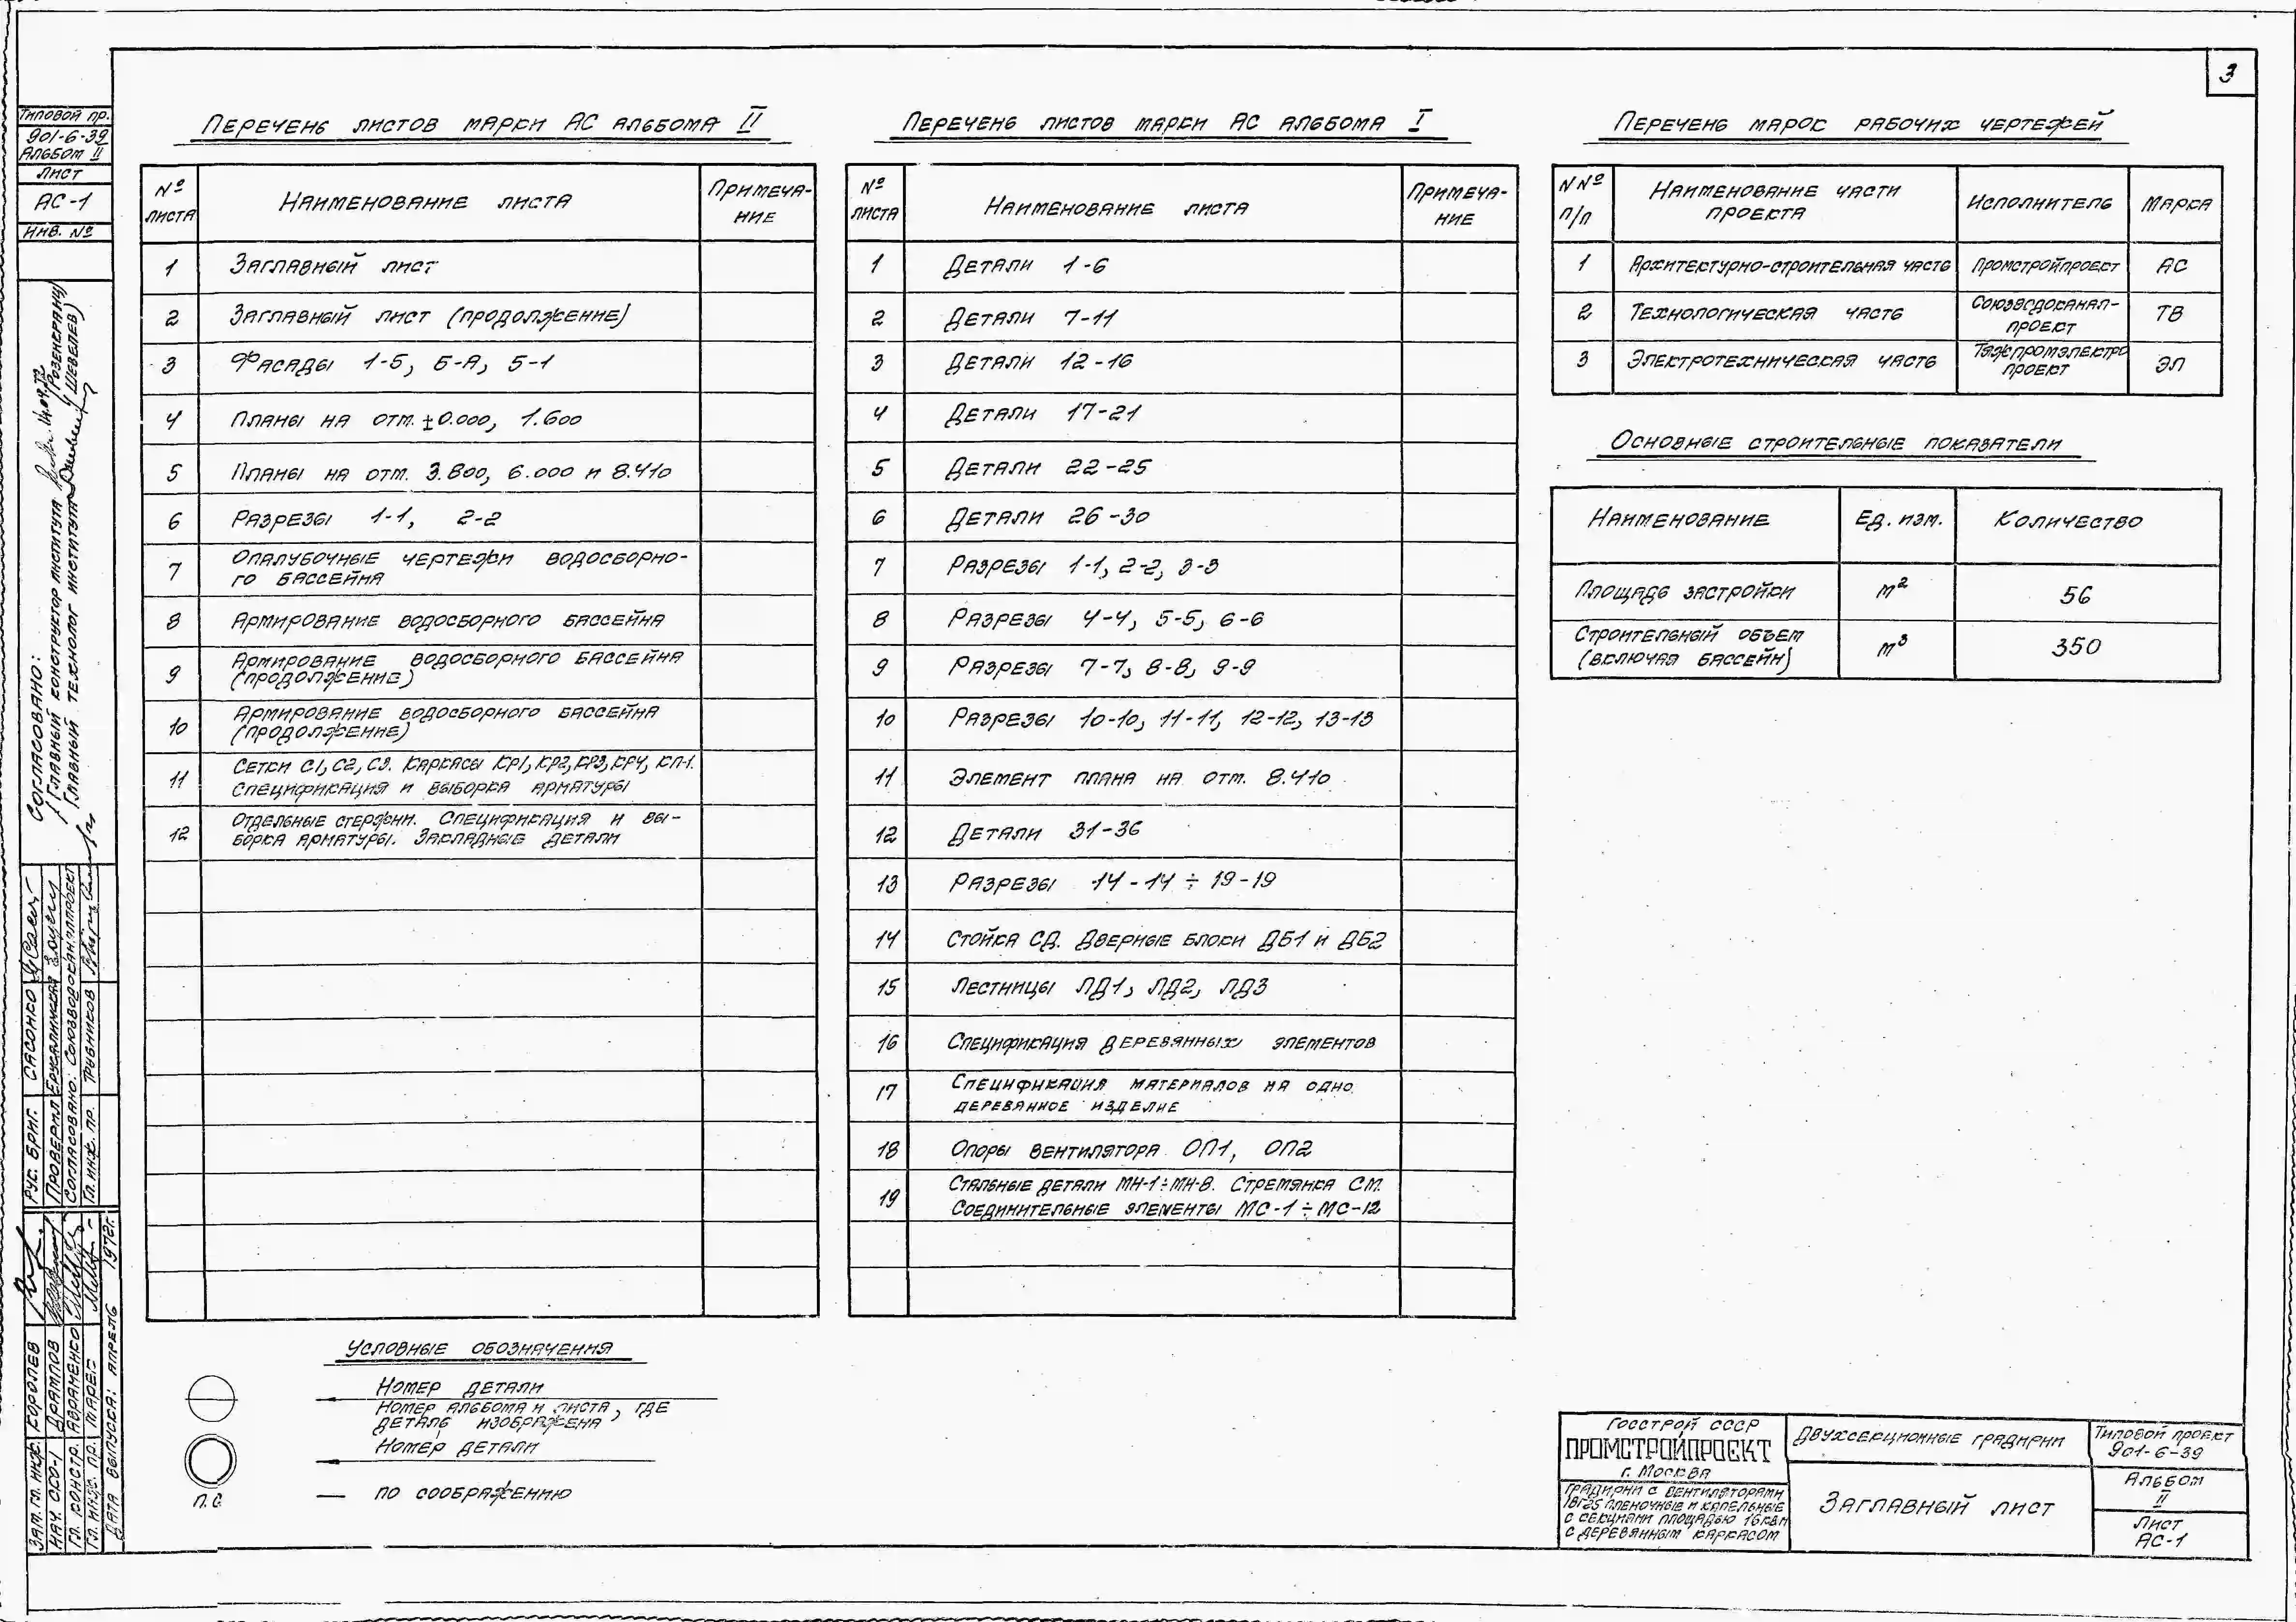 3
Типовой пр.
901-6-39
Альбом II
Лист
АС-1
Инв. №
Перечень листов марки АС альбома II
№ листа Наименование листа Примеча-ние
1 Заглавный лист
2 Заглавный лист (продолжение)
3 Фасады 1-5, Б-А, 5-1
4 Планы на отм. ±0.000, 1.600
5 Планы на отм. 3.800, 6.000 и 8.410
6 Разрезы 1-1, 2-2
7 Опалубочные чертежи водосборно-
го бассейна
8 Армирование водосборного бассейна
9 Армирование водосборного бассейна
(продолжение)
10 Армирование водосборного бассейна
(продолжение)
11 Сетки С1, С2, С3. Каркасы КР1, КР2, КР3, КР4, КП-1.
Спецификация и выборка арматуры
12 Отдельные стержни. Спецификация и вы-
борка арматуры. Закладные детали
Перечень листов марки АС альбома I
№ листа Наименование листа Примеча-ние
1 Детали 1-6
2 Детали 7-11
3 Детали 12-16
4 Детали 17-21
5 Детали 22-25
6 Детали 26-30
7 Разрезы 1-1, 2-2, 3-3
8 Разрезы 4-4, 5-5, 6-6
9 Разрезы 7-7, 8-8, 9-9
10 Разрезы 10-10, 11-11, 12-12, 13-13
11 Элемент плана на отм. 8.410
12 Детали 31-36
13 Разрезы 14-14 ÷ 19-19
14 Стойка СД. Дверные блоки ДБ1 и ДБ2
15 Лестницы ЛД1, ЛД2, ЛД3
16 Спецификация деревянных элементов
17 Спецификация материалов на одно
деревянное изделие
18 Опоры вентилятора ОП1, ОП2
19 Стальные детали МН-1÷МН-8. Стремянка СМ.
Соединительные элементы МС-1÷МС-12
Перечень марок рабочих чертежей
NN° п/п Наименование части проекта Исполнитель Марка
1 Архитектурно-строительная часть Промстройпроект АС
2 Технологическая часть Союзводоканал-проект ТВ
3 Электротехническая часть Тяжпромэлектропроект ЭЛ
Основные строительные показатели
Наименование Ед. изм. Количество
Площадь застройки м² 56
Строительный объем
(включая бассейн) м³ 350
Условные обозначения
Номер детали
Номер альбома и листа, где
деталь изображена
Номер детали
П.С. — по соображению
Согласовано:
Главный конструктор института
Главный технолог института (Шевелев)
Рук. бриг. Сасонко
Проверил Ерусалимская
Согласовано: Союзводоканалпроект
Гл. инж. пр. Трубников
Зам. гл. инж. Королев
Нач. ОСО-1
Гл. констр. Авраменко
Гл. инж. пр.
Дата выпуска: апрель 1972г.
Госстрой СССР
ПРОМСТРОЙПРОЕКТ
г. Москва
Градирни с вентиляторами
1ВГ25 пленочные и капельные
с секциями площадью 16 кв.м
с деревянным каркасом
Двухсекционные градирни
Заглавный лист
Типовой проект
901-6-39
Альбом
II
Лист
АС-1